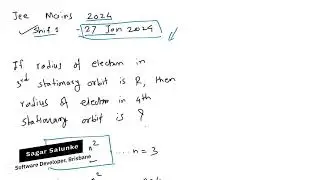 Jee Mains 2024
✓ Shift 1 - 27 Jan 2024
If radius of electron in
3rd stationary orbit is R, then
radius of electron in 4th
stationary orbit is ?
Sagar Salunke
n² .... n = 3
Software Developer, Brisbane
n²